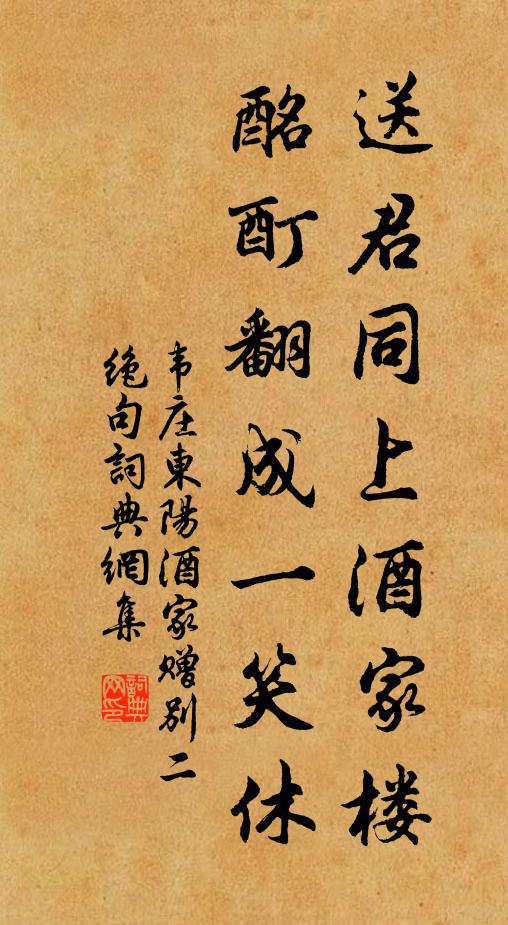 送君同上酒家楼
酩酊翻成一笑休
韦庄東陽酒家赠别二
绝句詞典網集
詞典
网印